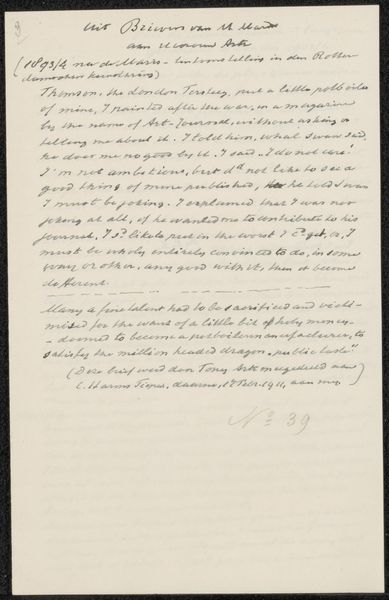 3
uit Brieven van M. Maris
aan Mevrouw Ark
(1893/4
Thomson, the London Tersteeg, put a little potboiler
of mine, I painted after the war, in a magazine
by the name of Art-Journal, without asking or
telling me about it. I told him, what Swan said,
he does me no good by it. I said „I do not care
I'm not ambitious, but d° not like to see a
good thing of mine published, he told Swan
I must be joking. I explained that I was not
joking at all, if he wanted me to contribute to his
journal, I sd likely put in the worst I cd get, or, I
must be wholy entirely convinced to do, in some
way or other, any good with it, then it become
different.
Many a fine talent had to be sacrificed and victi-
mised for the want of a little bit of holy money -
- doomed to become a potboilermanufacturer, to
satisfy the million headed dragon „public taste"
(Deze brief werd door Tony Ark meegedeeld aan
C. Harms Tiepen, 1911, aan mij
No 39